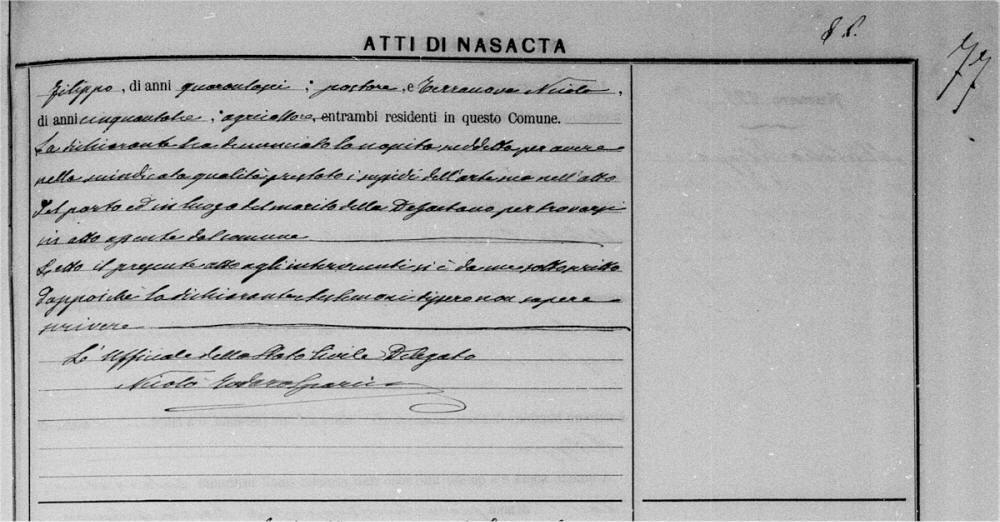 ATTI DI NASACTA
77
Filippo, di anni quarantasei; pastore, e Terranova Nicolò,
di anni cinquantatre; agricoltore, entrambi residenti in questo Comune.
La dichiarante ha denunciato la nascita suddetta per avere
nella suindicata qualità prestato i sussidi dell'arte sua nell'atto
del parto ed in luogo del marito della De Gaetano per trovarsi
in atto assente dal comune
Letto il presente atto agli intervenuti si è da me sottoscritto
dappoichè la dichiarante testimoni dissero non sapere
scrivere
L'Ufficiale dello Stato Civile Delegato
Nicolò Todaro